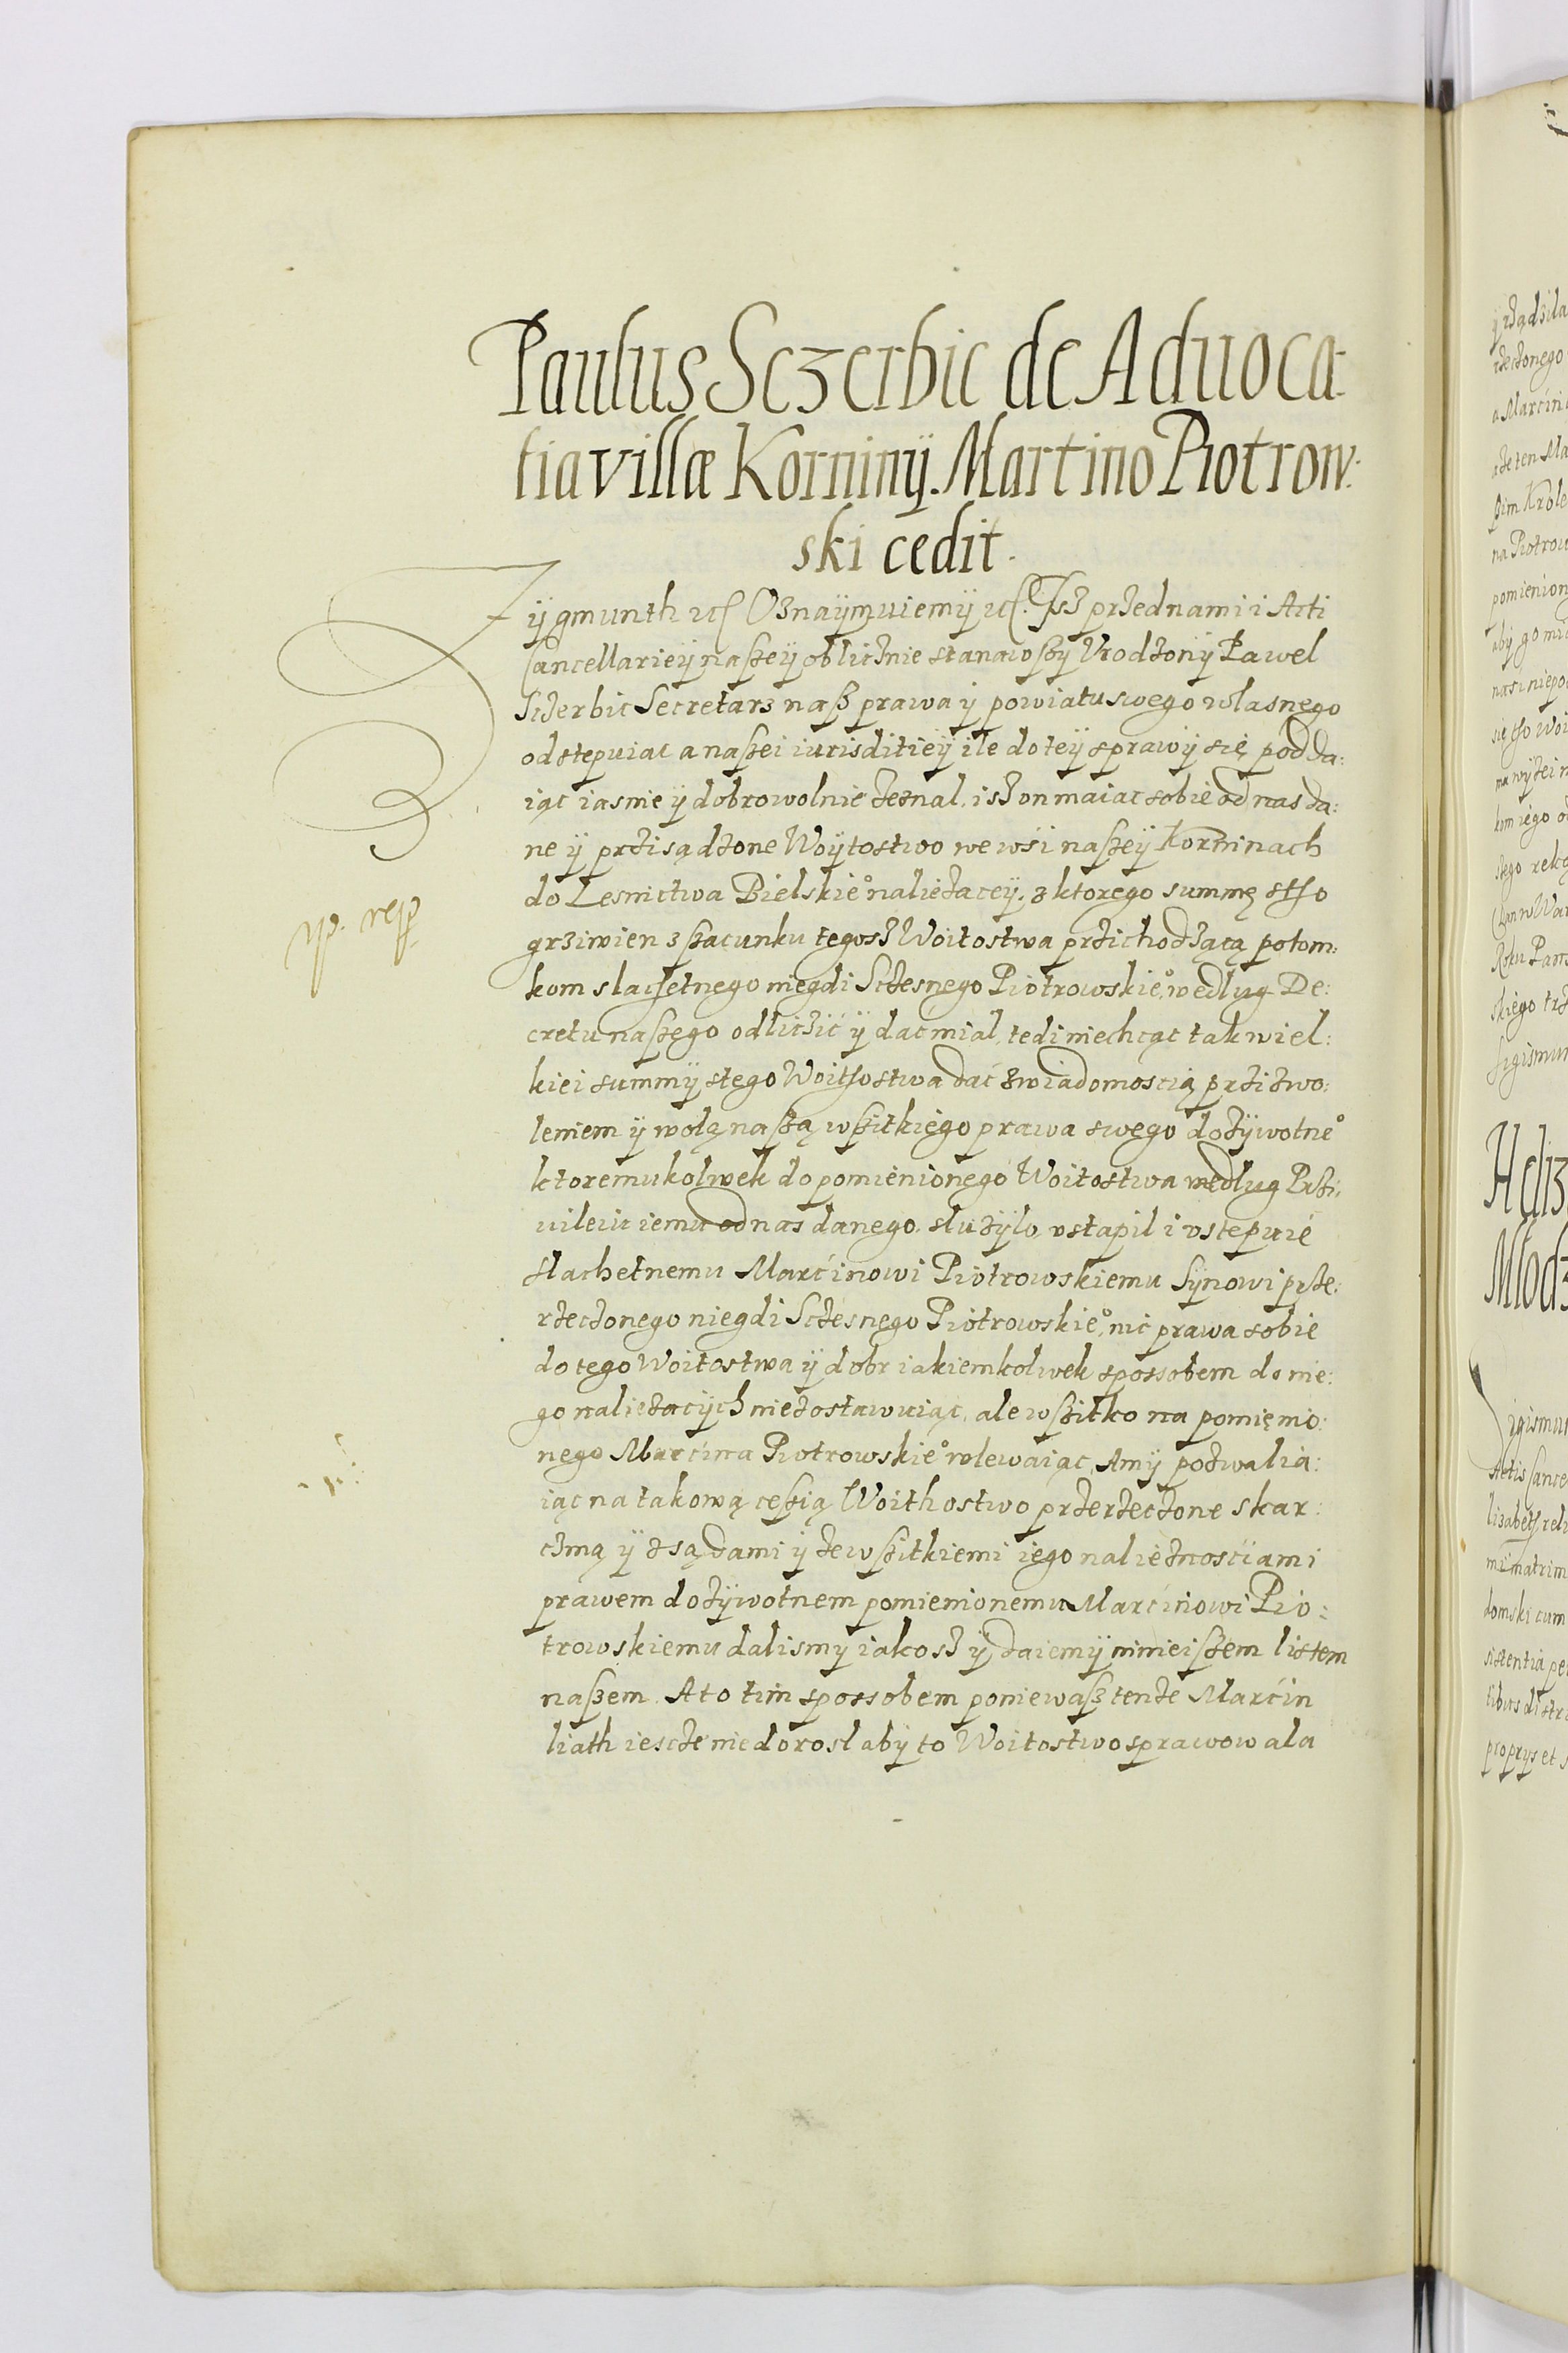 Paulus Sczerbic de Aduoca:
tia villæ Korninÿ. Martino Piotrow:
ski cedit.
Zÿgmunth etc Oznaÿmuiemÿ etc. Isz przed nami i Acti
Cancellarieÿ naßeÿ oblicznie stanąwßÿ Vrodzonÿ Pawel
Sczerbic Secretarz naß prawa ÿ powiatu swego wlasnego
odstepuiac a naßei iurisditieÿ ile do teÿ sprawÿ się podda:
iąc iasnie ÿ dobrowolnie zeznal, isz on maiac sobie od nas da:
ne ÿ przisądzone Woÿtostwo we wśi naßeÿ Korninach
do Lesnictwa Bielskie° należaceÿ, z ktorego summę stho
grziwien z ßacunku tegosz Woitostwa przichodzącą potom:
kom slachetnego niegdi Sczesnego Piotrowskie°, wedlug De:
cretu naßego odliczić ÿ dac mial, tedi niechcąc tak wiel:
kiei summÿ stego Woithostwa dać z wiadomoscią przizwo:
leniem ÿ wolą naßą wßitkiego prawa swego dożÿwotne°
ktoremukolwek do pomienionego Woitostwa wedlug Prżi:
uileiu iemu od nas danego, sluzÿlo, vstapil i vstepuie
slachetnemu Marcinowi Piotrowskiemu Sÿnowi prze:
rzeczonego niegdi Sczesnego Piotrowskie°, nic prawa sobie
do tego Woitostwa ÿ dobr iakiemkolwek spossobem do nie:
go należacÿch niezostawuiąc, ale wßitko na pomięnio:
nego Marcina Piotrowskie° wlewaiąc, A mÿ pozwalia:
iąc na takową ceßią Woithostwo przerzeczone s kar:
czmą ÿ z sądami ÿ ze wßitkiemi iego należnosciami
prawem dożÿwotnem pomienionemu Marcinowi Pio:
trowskiemu dalismy iakosz ÿ daiemÿ ninieißem listem
naßem. A to tim spossobem poniewaß tenże Marcin
liath iescze nie dorosl abÿ to Woitostwo sprawowala